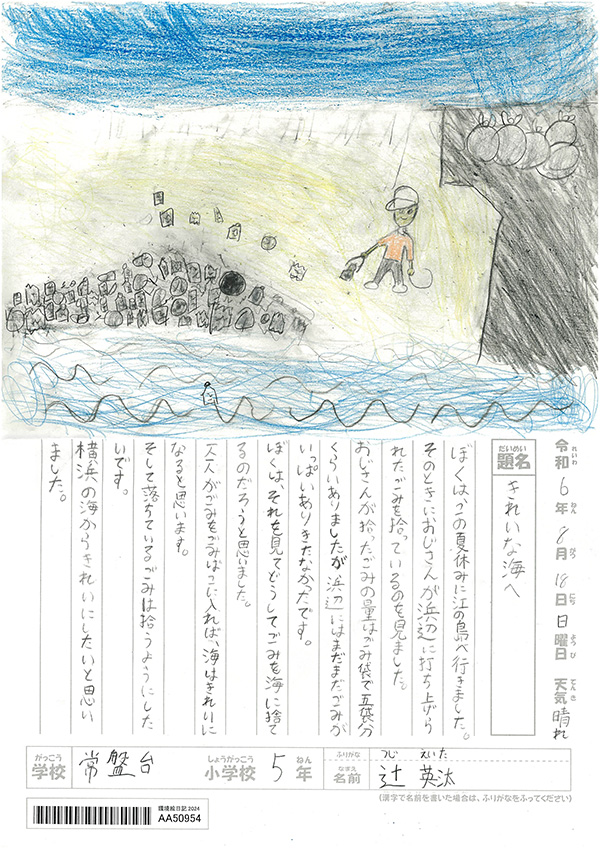 令和6年8月18日日曜日 天気晴れ
れいわ ねん がつ にち ようび てんき
だいめい
題名 きれいな海へ
ぼくは、この夏休みに江の島へ行きました。
そのときにおじさんが浜辺に打ち上げら
れたごみを拾っているのを見ました。
おじさんが拾ったごみの量はごみ袋で五袋分
くらいありましたが浜辺にはまだまだごみが
いっぱいありきたなかったです。
ぼくは、それを見てどうしてごみを海に捨て
るのだろうと思いました。
一人一人がごみをごみばこに入れば、海はきれいに
なると思います。
そして落ちているごみは拾うようにした
いです。
横浜の海からきれいにしたいと思い
ました。
がっこう しょうがっこう ねん ふりがな つじ えいた
学校 常盤台 小学校 5年 なまえ 名前 辻 英汰
(漢字で名前を書いた場合は、ふりがなをふってください)
環境絵日記 2024
AA50954